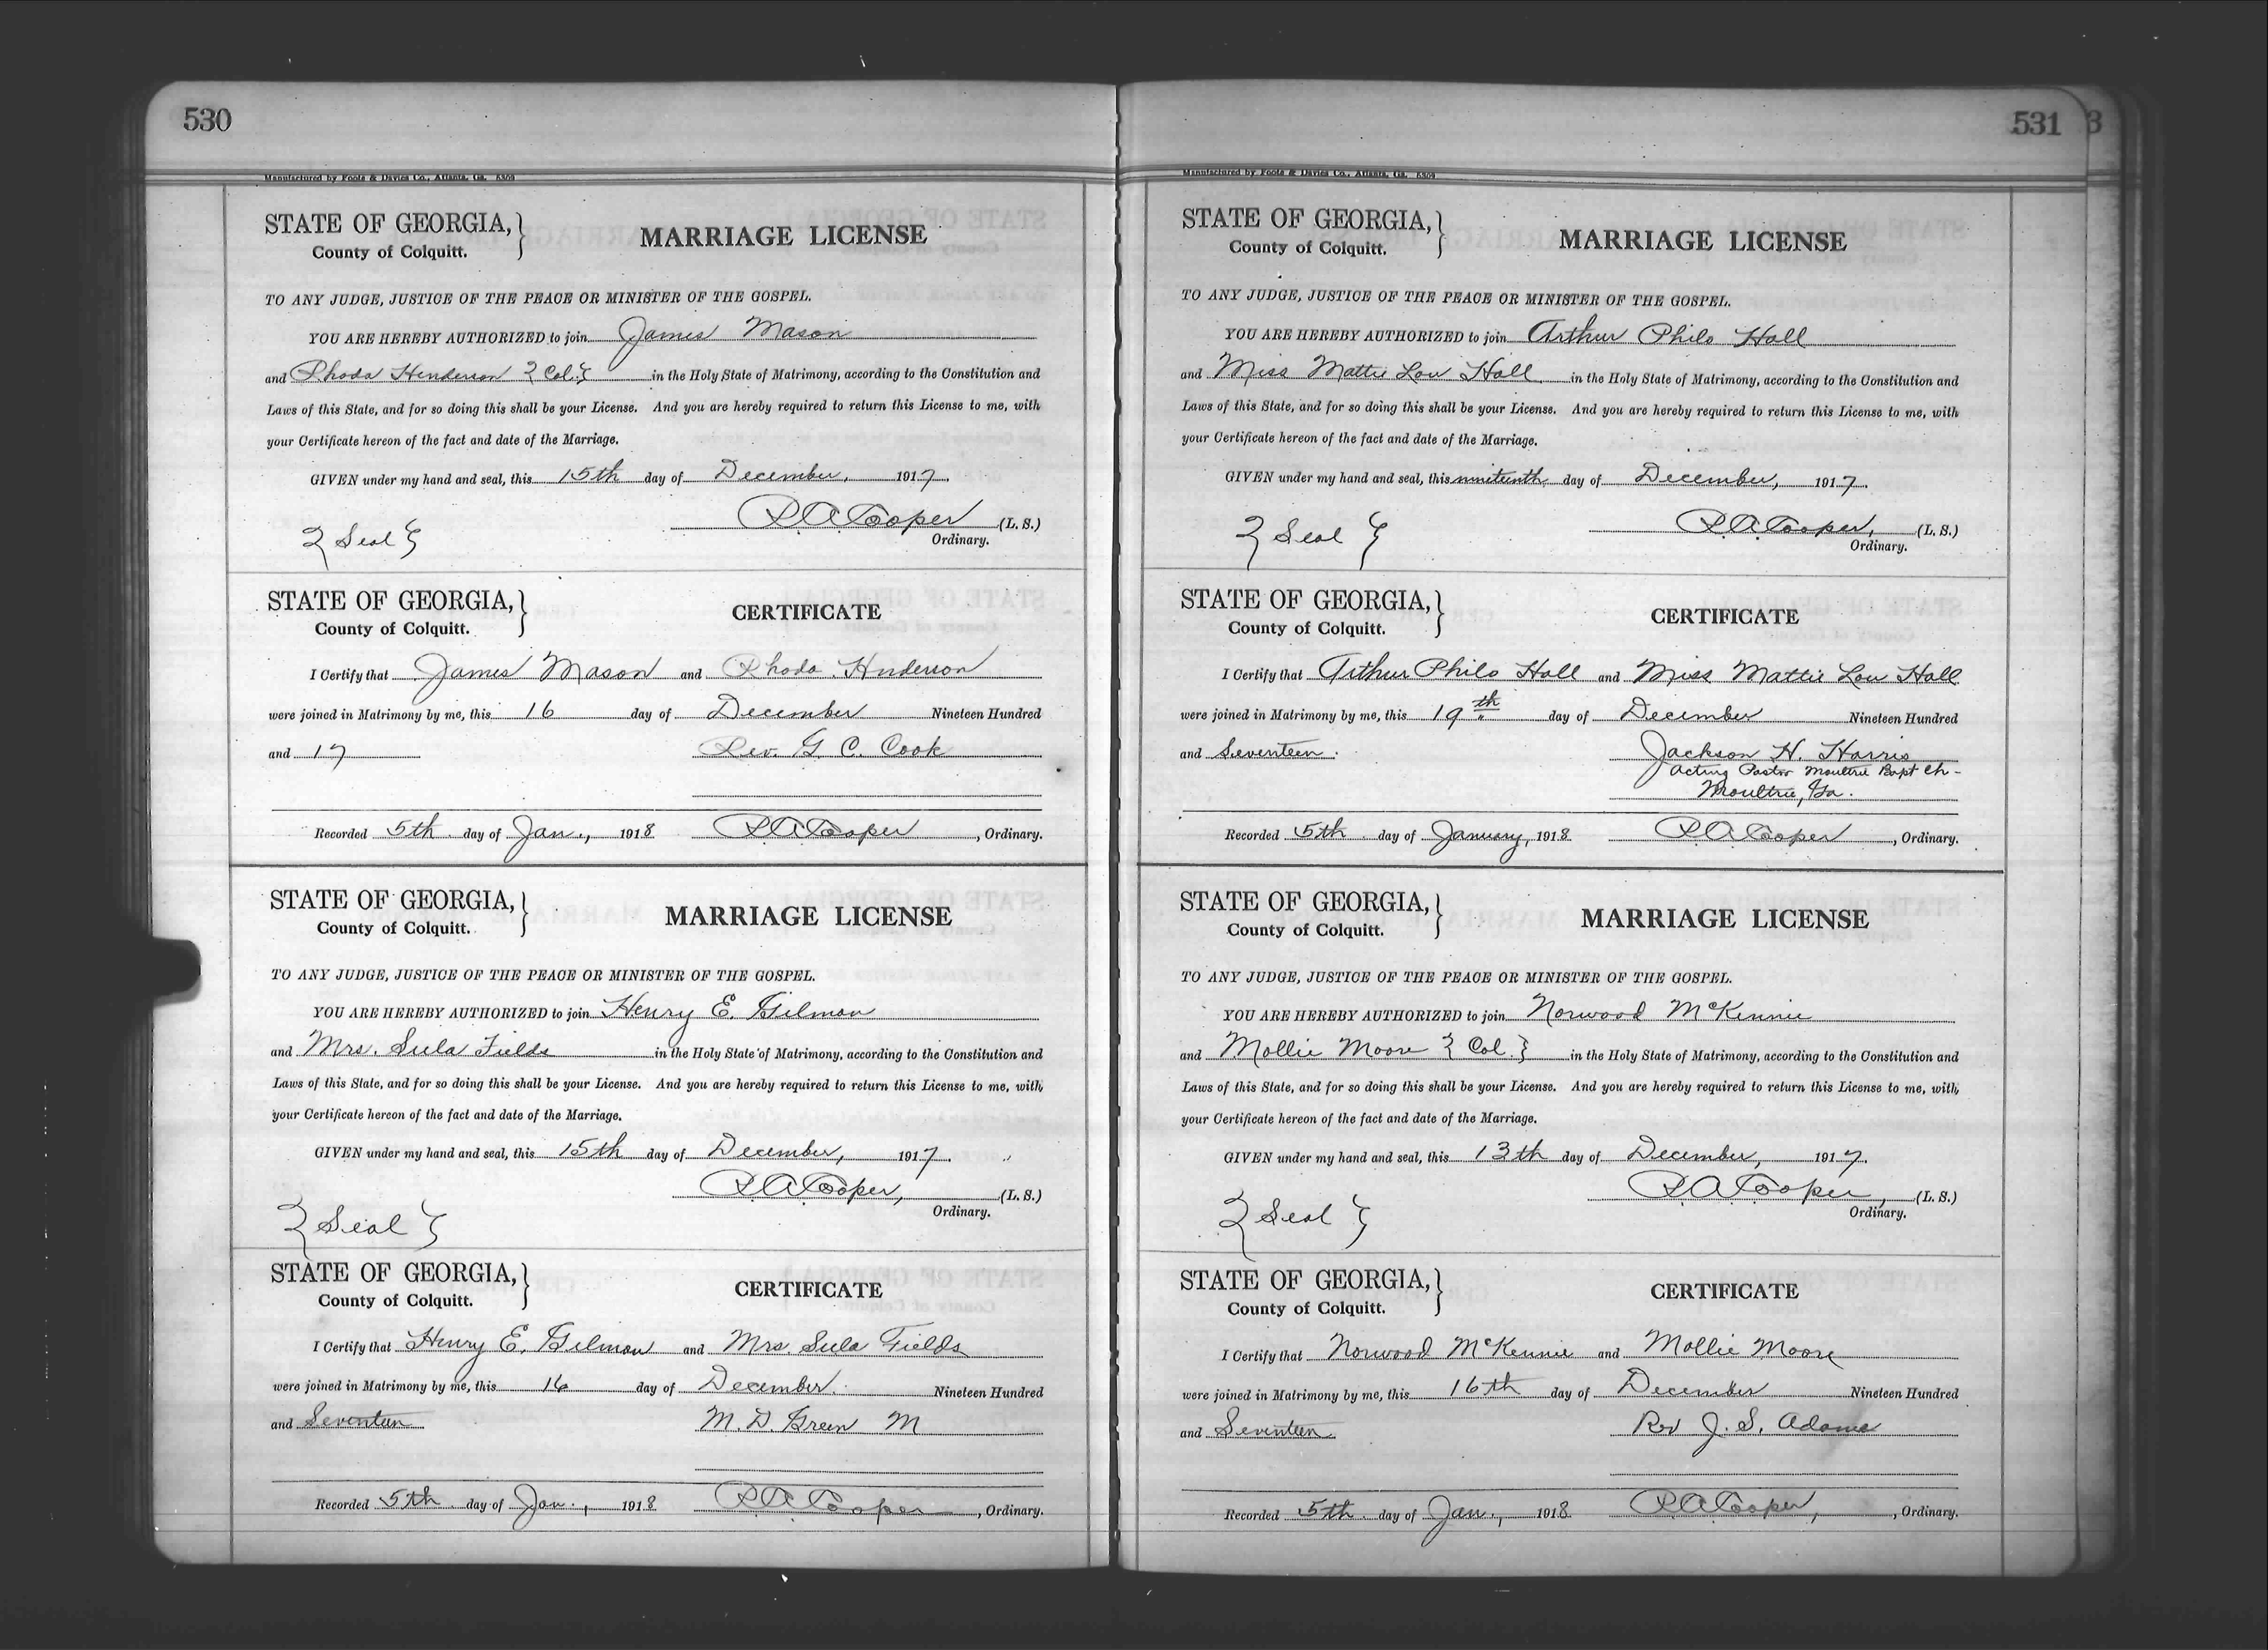 530
Manufactured by Foote & Davies Co., Atlanta, Ga. 5309
STATE OF GEORGIA,}
County of Colquitt.
MARRIAGE LICENSE
TO ANY JUDGE, JUSTICE OF THE PEACE OR MINISTER OF THE GOSPEL.
YOU ARE HEREBY AUTHORIZED to join James Mason
and Rhoda Henderson { Col. } in the Holy State of Matrimony, according to the Constitution and
Laws of this State, and for so doing this shall be your License. And you are hereby required to return this License to me, with
your Certificate hereon of the fact and date of the Marriage.
GIVEN under my hand and seal, this 15th day of December, 1917.
R A Cooper (L. S.)
{ Seal }
Ordinary.
STATE OF GEORGIA,}
County of Colquitt.
CERTIFICATE
I Certify that James Mason and Rhoda Hnderson
were joined in Matrimony by me, this 16 day of December Nineteen Hundred
and 17 Rev. G C. Cook
Recorded 5th day of Jan., 1918 R A Cooper, Ordinary.
STATE OF GEORGIA,}
County of Colquitt.
MARRIAGE LICENSE
TO ANY JUDGE, JUSTICE OF THE PEACE OR MINISTER OF THE GOSPEL.
YOU ARE HEREBY AUTHORIZED to join Henry E. Gilmon
and Mrs. Sula Fields in the Holy State of Matrimony, according to the Constitution and
Laws of this State, and for so doing this shall be your License. And you are hereby required to return this License to me, with
your Certificate hereon of the fact and date of the Marriage.
GIVEN under my hand and seal, this 15th day of December, 1917.
R A Cooper, (L. S.)
{ Seal }
Ordinary.
STATE OF GEORGIA,}
County of Colquitt.
CERTIFICATE
I Certify that Henry E. Gilmon and Mrs. Sula Fields
were joined in Matrimony by me, this 16 day of December. Nineteen Hundred
and Seventeen M. D. Green M
Recorded 5th day of Jan., 1918 R A Cooper, Ordinary.
531
3
Manufactured by Foote & Davies Co., Atlanta, Ga. 5309
STATE OF GEORGIA,}
County of Colquitt.
MARRIAGE LICENSE
TO ANY JUDGE, JUSTICE OF THE PEACE OR MINISTER OF THE GOSPEL.
YOU ARE HEREBY AUTHORIZED to join Arthur Philo Hall
and Miss Mattie Lou Hall in the Holy State of Matrimony, according to the Constitution and
Laws of this State, and for so doing this shall be your License. And you are hereby required to return this License to me, with
your Certificate hereon of the fact and date of the Marriage.
GIVEN under my hand and seal, this ninteenth day of December, 1917.
R. A. Cooper, (L. S.)
{ Seal }
Ordinary.
STATE OF GEORGIA,}
County of Colquitt.
CERTIFICATE
I Certify that Arthur Philo Hall and Miss Mattie Lou Hall
were joined in Matrimony by me, this 19th day of December Nineteen Hundred
and Seventeen. Jackson H. Harris
Acting Pastor Moultrie Bapt Ch-
Moultrie, Ga.
Recorded 5th day of January, 1918 R A Cooper, Ordinary.
STATE OF GEORGIA,}
County of Colquitt.
MARRIAGE LICENSE
TO ANY JUDGE, JUSTICE OF THE PEACE OR MINISTER OF THE GOSPEL.
YOU ARE HEREBY AUTHORIZED to join Norwood McKinnie
and Mollie Moore { Col. } in the Holy State of Matrimony, according to the Constitution and
Laws of this State, and for so doing this shall be your License. And you are hereby required to return this License to me, with
your Certificate hereon of the fact and date of the Marriage.
GIVEN under my hand and seal, this 13th day of December, 1917.
R A Cooper, (L. S.)
{ Seal }
Ordinary.
STATE OF GEORGIA,}
County of Colquitt.
CERTIFICATE
I Certify that Norwood McKennie and Mollie Moore
were joined in Matrimony by me, this 16th day of December Nineteen Hundred
and Seventeen Rev J. S. Adams
Recorded 5th day of Jan., 1918 R A Cooper, Ordinary.